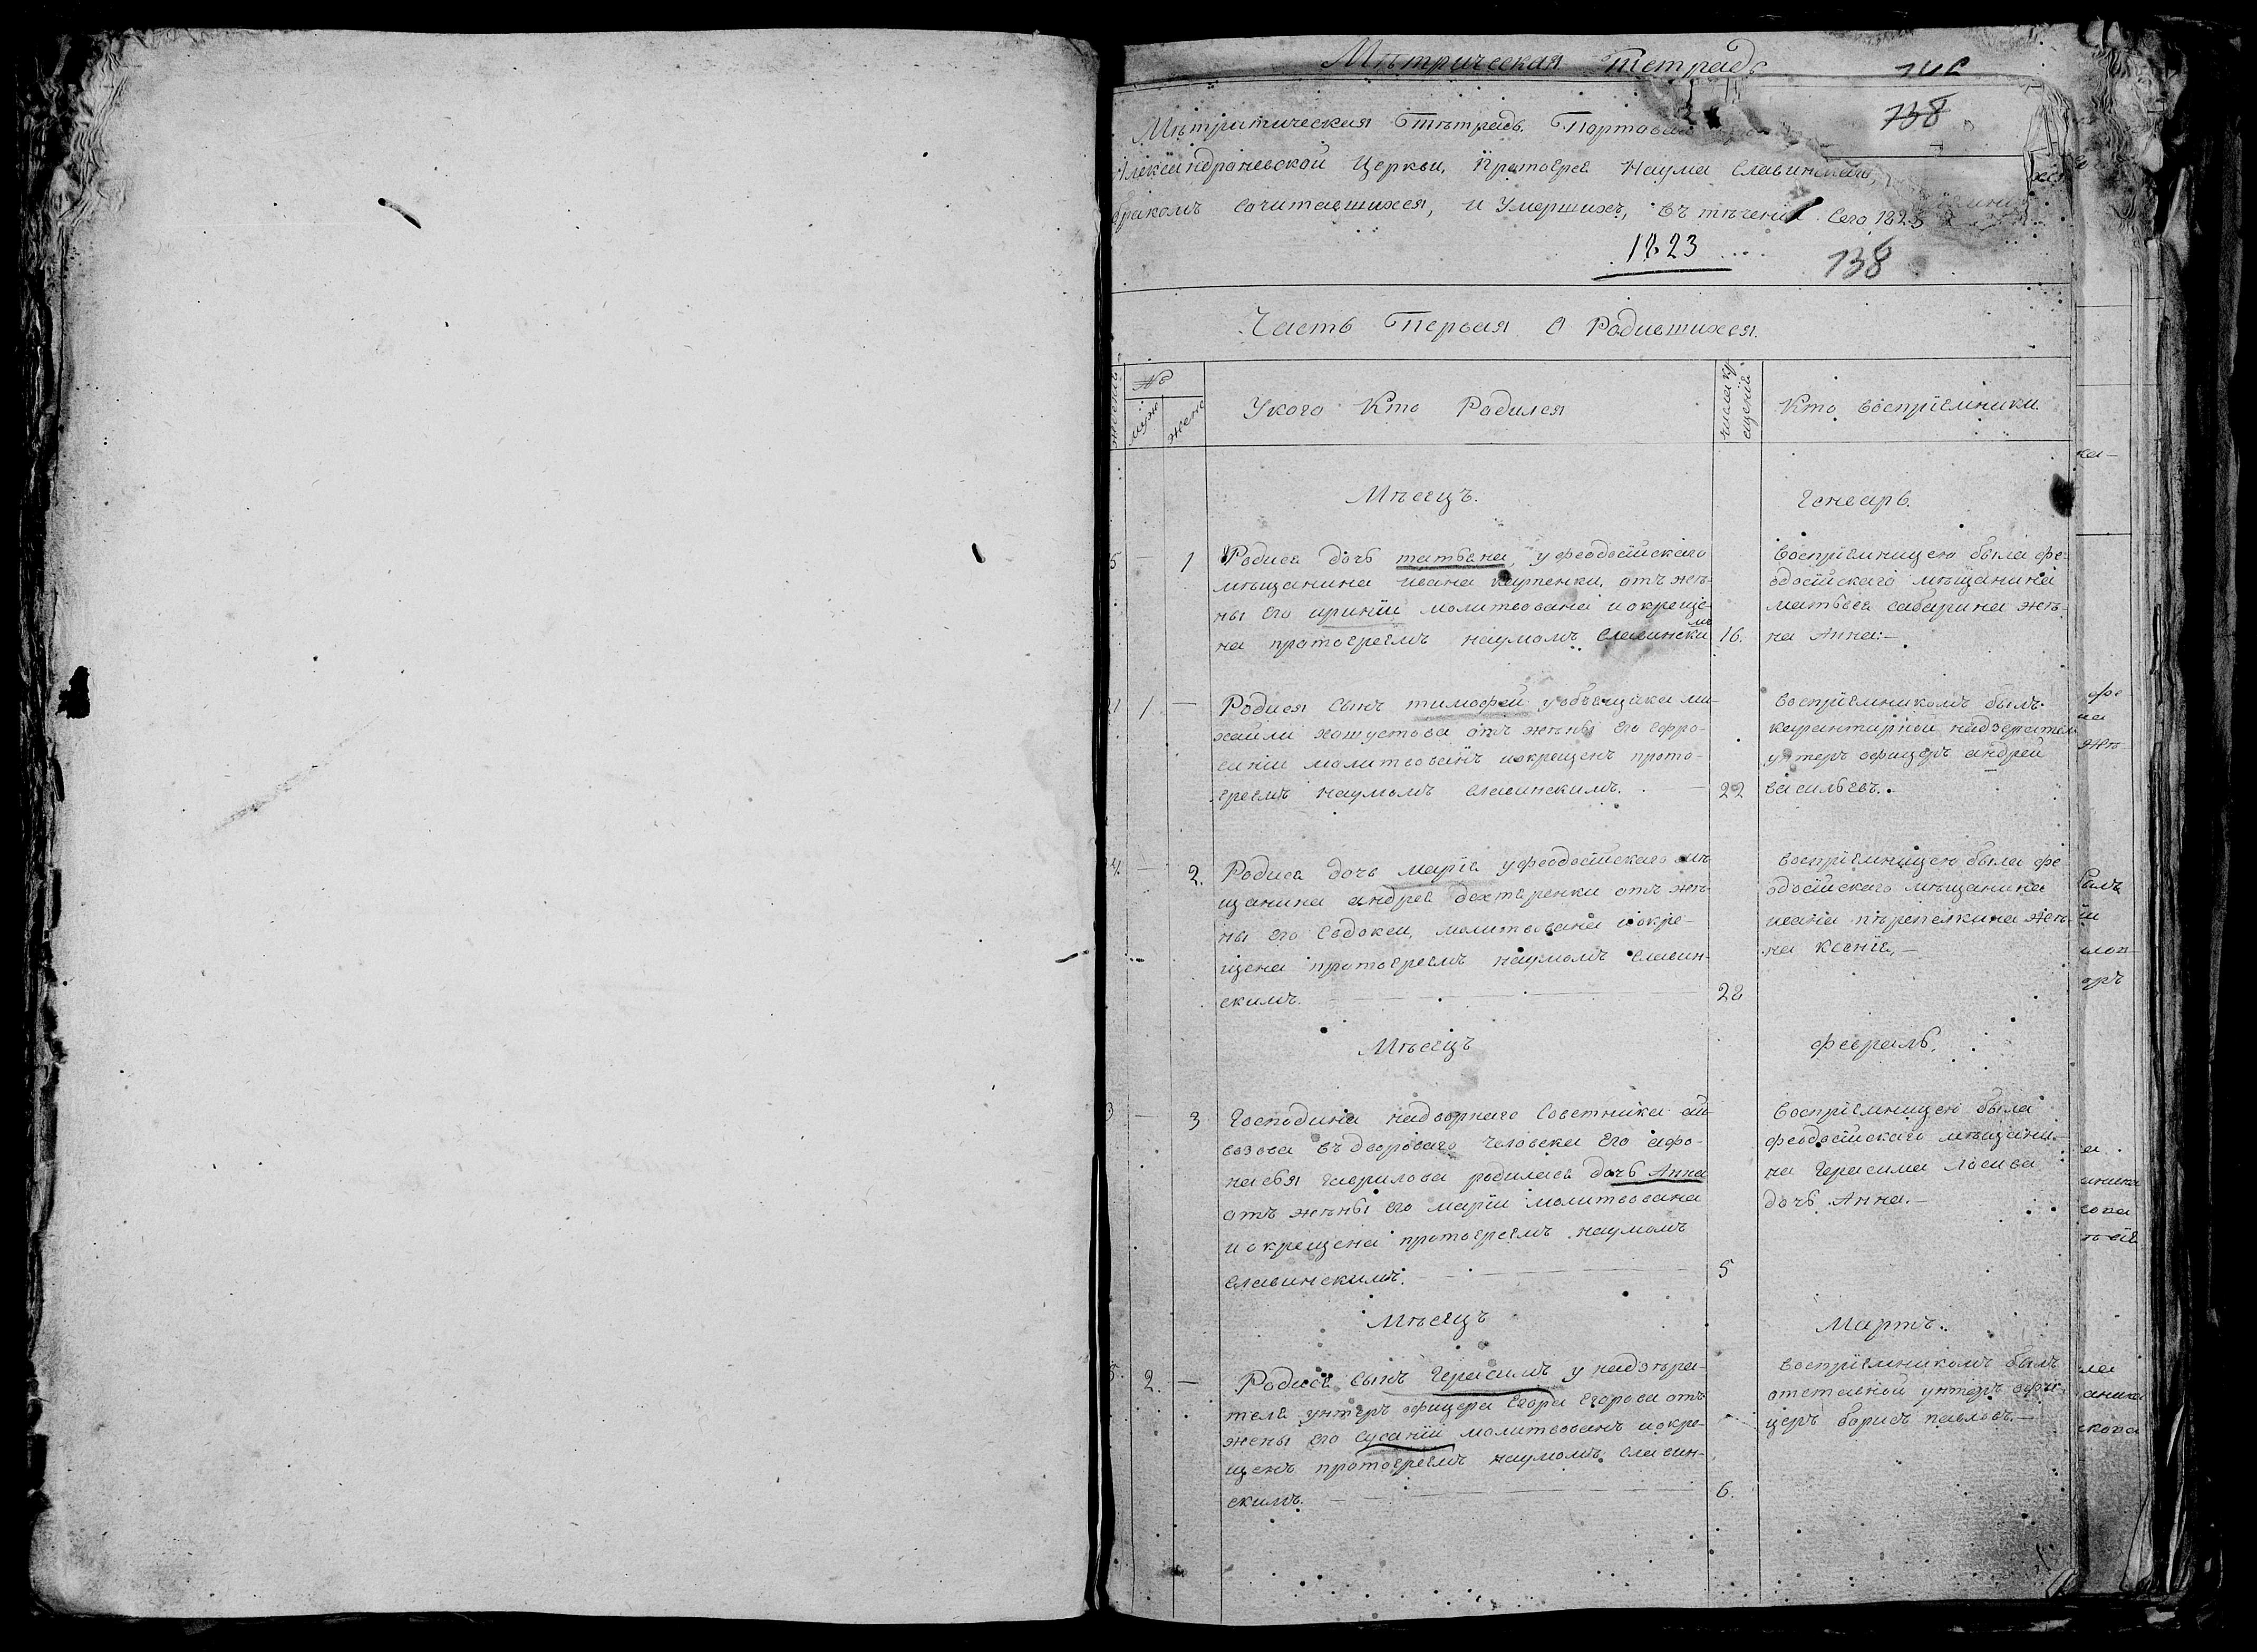 Мѣтрическая тетрадь
738
Мѣтритическая Тѣтрадь Портовой
Александроневской Церкви, Протоерея Наума Славинскаго,
бракомъ сочитавшихся, и Умершихъ, въ тѣчении Сего 1823
1823
738
Часть Первая О Родившихся.
№
муж
женс
У кого Кто Родился
число кр
ещенія
Кто воспріемники
Мѣсяцъ. Генварь.
5 — 1 Родися дочь татьяна, у феодосійскаго
мѣщанина ивана карпенки, отъ жѣ-
ны его ириніи молитвована и окреще-
на протоереемъ наумомъ Славински
мъ 16.
воспріемницею была фе-
одосійскаго мѣщанина
матвея сабарина жѣ-
на Анна:—
21 1 — Родися Сынъ тимофей у объещика ми-
хайли хашустова отъ жѣны Его Ефро-
синіи молитвованъ и окрещенъ прото-
ереемъ наумомъ славинскимъ. 22
воспріемникомъ былъ
карантирной надзератель
унтеръ офицеръ андрей
васильевъ.
24 — 2. Родися дочь марія у феодосійскаго мѣ
щанина андрея дехтеренки отъ жѣ-
ны его Евдокеи, молитвована и окре-
щена протоереемъ наумомъ славин-
скимъ. 28
воспріемницею была фе
одосійскаго мѣщанина
ивана пѣрепелкина жѣ-
на ксенія,—
Мѣсяцъ февраль.
3 — 3 Господина надворнаго Советника ай-
возова въ двороваго человека Его афо-
насья гаврилова родилась дочь Анна
отъ жѣны его маріи молитвована
и окрещена протоереемъ наумомъ
славинскимъ. 5
воспріемницею была
феодосійскаго мѣщани-
на Герасима лосива
дочь Анна.—
Мѣсяцъ Мартъ.
5. 2. — Родися Сынъ Герасимъ у надзѣра-
теля унтеръ офицера Егора Егорова отъ
жены его Сусаніи молитвованъ и окре-
щенъ протоереемъ наумомъ славин-
скимъ. 6.
воспріемникомъ былъ
отставной унтеръ офи-
церъ борисъ павловъ.—